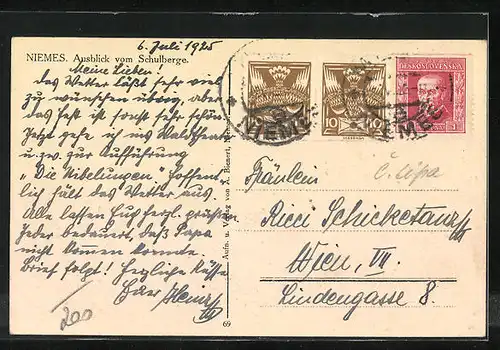 6. Juli 1925
NIEMES. Ausblick vom Schulberge.
Meine Lieben!
Das Wetter läßt sehr viel
zu wünschen übrig, aber
das Fest ist sonst sehr schön.
Jetzt gehe ich ins Waldtheater
u. zw. zur Aufführung
"Die Nibelungen" hoffent-
lich hält das Wetter aus.
Alle lassen Euch herzl. grüßen
Jeder bedauert, daß Papa
nicht kommen konnte.
Brief folgt! Herzliche Küsse
Euer Heinz
200
Aufn. u. Verl. von A. Bienert,
69
ČESKOSLOVENSKÁ
10
10
NIEMES
Č. Lípa
Fräulein
Ricci Schicketanz
Wien, VII.
Lindengasse 8.